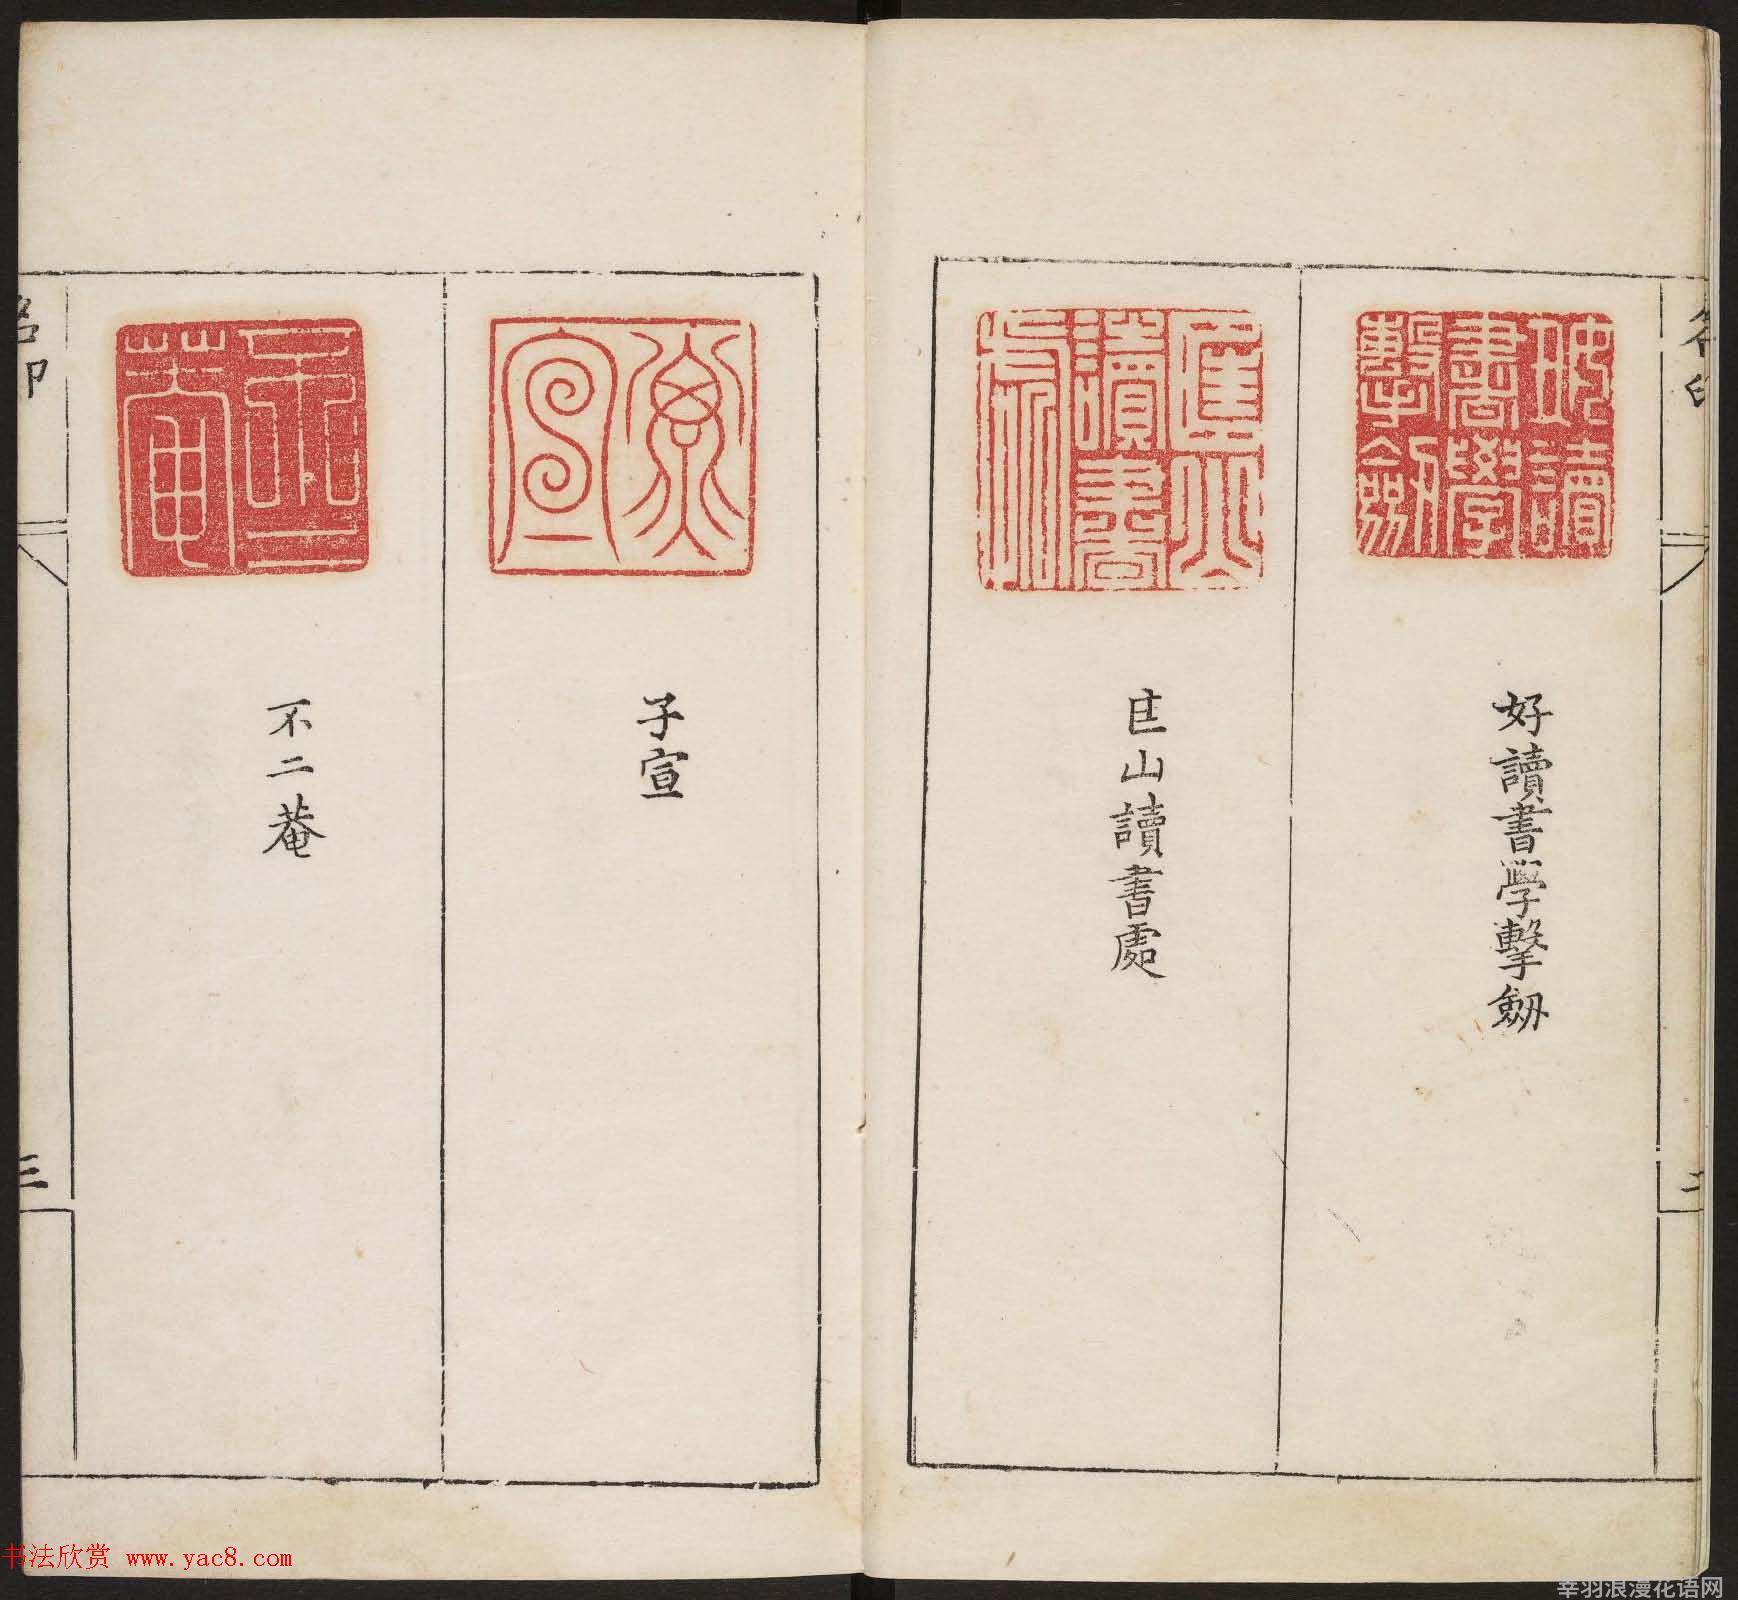 好讀書學擊劒
匡山讀書處
子宣
不二菴
名印
三
书法欣赏 www.yac8.com
辛羽浪漫花语网